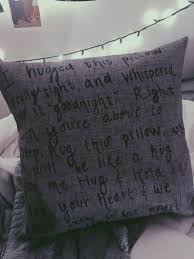 I hugged this pillow
really tight, and whispered
"goodnight". Right
you're about to
hug this pillow
will be like a hug
me. Hug & Hold
your Heart & we